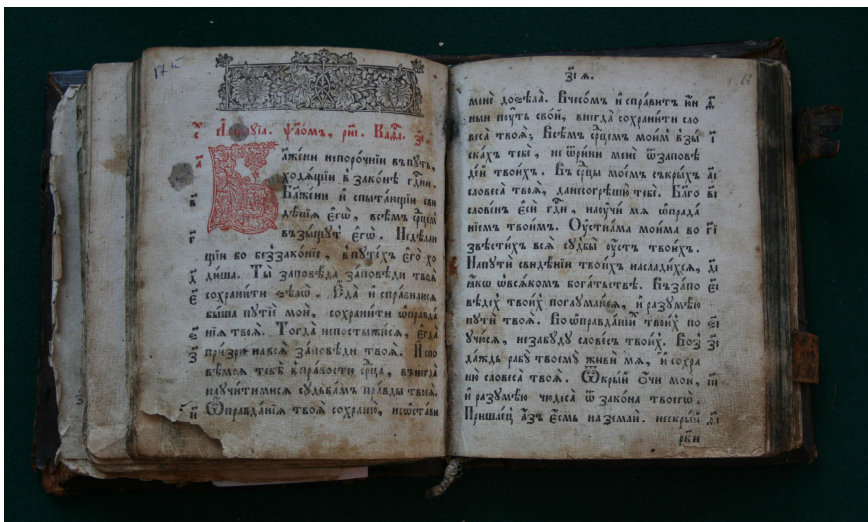 Аллилуїа. ѱло́мъ, ри҃і. Каѳі́. з҃і.
Бл҃же́ни непоро́чнїи въпу́ть,
ходѧ́щїи в̾зако́нѣ гдⷭ҇ни.
Бл҃же́ни и҆спыта́ющїи сви
дѣ́нїѧ е҆гѡ̀, всѣ́мъ срⷣцемъ
взы́щутъ е҆гѡ̀. Недѣ́лаю
щїи бо беззако́нїе, в̾путе́хъ е҆гѡ̀ хо
ди́ша. Ты̀ заповѣ́да за́повѣди твоѧ̀
сохрани́ти ѕѣлѡ̀. Е҆да̀ и҆спра́вилисѧ
бы́ша путїѐ моѝ, сохрани́ти ѡ҆правда́
нїѧ твоѧ̀. Тогда̀ непостыжу́сѧ, е҆гда̀
призрю̀ навсѧ̀ за́повѣди твоѧ̀. И҆спо
вѣ́мсѧ тебѣ̀ в̾пра́вости срⷣца, внегда̀
научи́тимисѧ судьба́мъ пра́вды твоеѧ̀.
Ѡ҆правда́нїѧ твоѧ̀ сохраню̀, неѡ҆ста́ви
з҃і ѧ.
менѐ доѕѣла̀. Вчесо́мъ и҆спра́витъ ю҆́н
ныи пу́ть сво́й, внегда̀ сохрани́ти сло
веса̀ твоѧ̀, Всѣ́мъ срⷣцемъ мои́мъ взы
ска́хъ тебѐ, не ѿри́ни менѐ ѿза́повѣ
дей твои́хъ. Въ срⷣцы мое́мъ съкры́хъ
словеса̀ твоѧ̀, данесогрѣшу̀ тебѣ̀. Бл҃го
слове́нъ е҆сѝ гдⷭ҇и, научи́ мѧ ѡ҆правда́
нїемъ твои̑мъ. Оу҆стна́ма мои́ма во
звѣсти́хъ всѧ̀ судьбы̀ оу҆́стъ твои́хъ.
Напутѝ свидѣ́нїи твои́хъ наслади́хсѧ,
ꙗ҆́кѡ ѡ҆всѧ́комъ бога́тьствѣ. Въза́по
вѣдехъ твои́хъ поглумлю́сѧ, и҆ разумѣ́ю
пути̑ твоѧ̀. Во ѡ҆правда́нїихъ твои́хъ по
учю́сѧ, незабу́ду слове́съ твои́хъ. Воз
да́ждь рабу̀ твоему̀ живи́ мѧ, и҆ сохра
ню̀ словеса̀ твоѧ̀. Ѿкры́й ѻ҆́чи моѝ,
и҆ разумѣ́ю чюдеса̀ ѿ зако́на твоегѡ̀.
Пришле́цъ а҆́зъ е҆́смь на землѝ. нескры́й